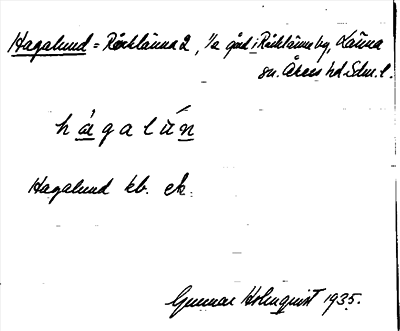 Hagalund = Räcklänna 2, 1/2 gård i Räcklänna by, Länna
sn. Åkers hd Sdm. l.
hágalún
Hagalund kb. ek.
Gunnar Holmquist 1935.